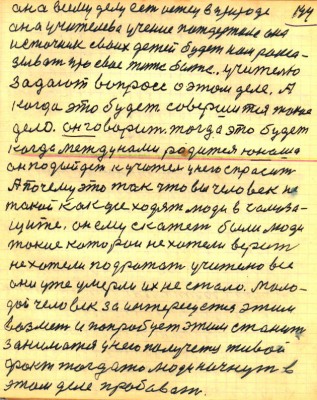 она всему делу есть истец в природе 144
она учителева учение подтвержено она
источник своих детей будет нам расска-
зывать про свое тяже бытье. учителю
задают вопросс о этом деле. А
когда это будет совершится такое
дело. он говорит. тогда это будет
когда между нами родится юноша
он подойдет к учителя у него спросит
А почему это так что вы человек не
такой как все ходят люди в самоза-
щите. он ему скажет были люди
такие которои не хотели верит
не хотели подражат учителю все
они уже умерли их не стало. моло-
дой человек за интересуется этим
возмет и попробует этим станит
заниматся у него получется живой
факт тогда то люди начнут в
этом деле пробоват.